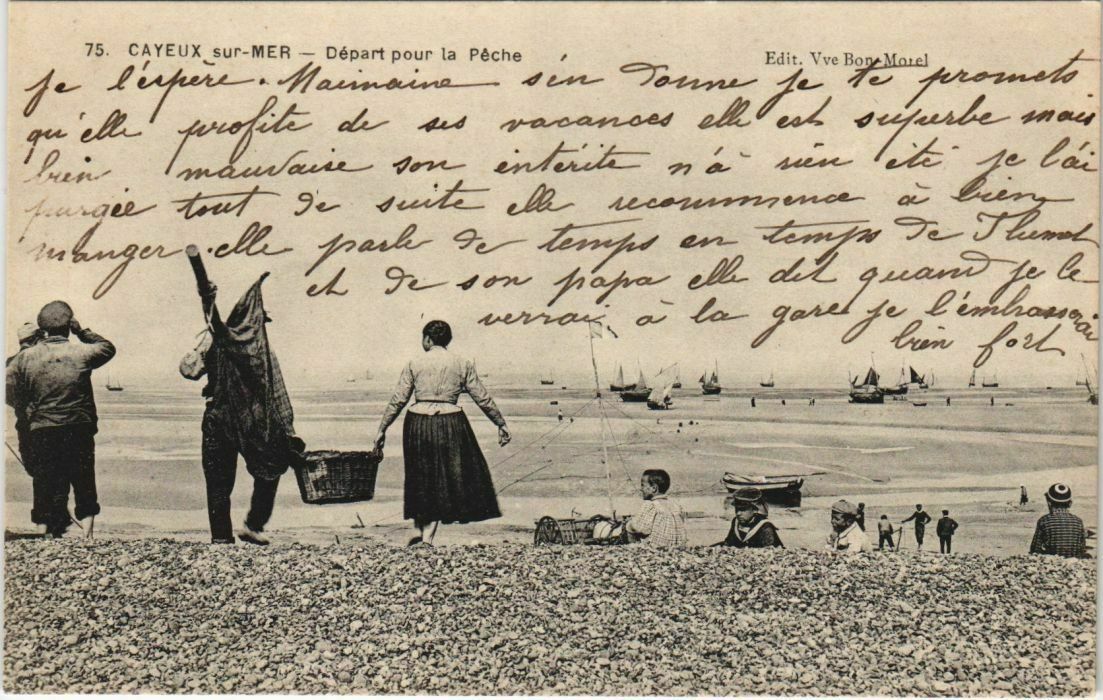 75. CAYEUX sur-MER — Départ pour la Pêche
Edit. Vve Bon-Morel
je l'éspère. Maimaine s'en donne je te promets
qu'elle profite de ses vacances elle est superbe mais
bien mauvaise son entérite n'a rien été je l'ai
purgée tout de suite elle recommence à bien
manger. elle parle de temps en temps de
et de son papa elle dit quand je le
verrai à la gare je l'embrasserai
bien fort